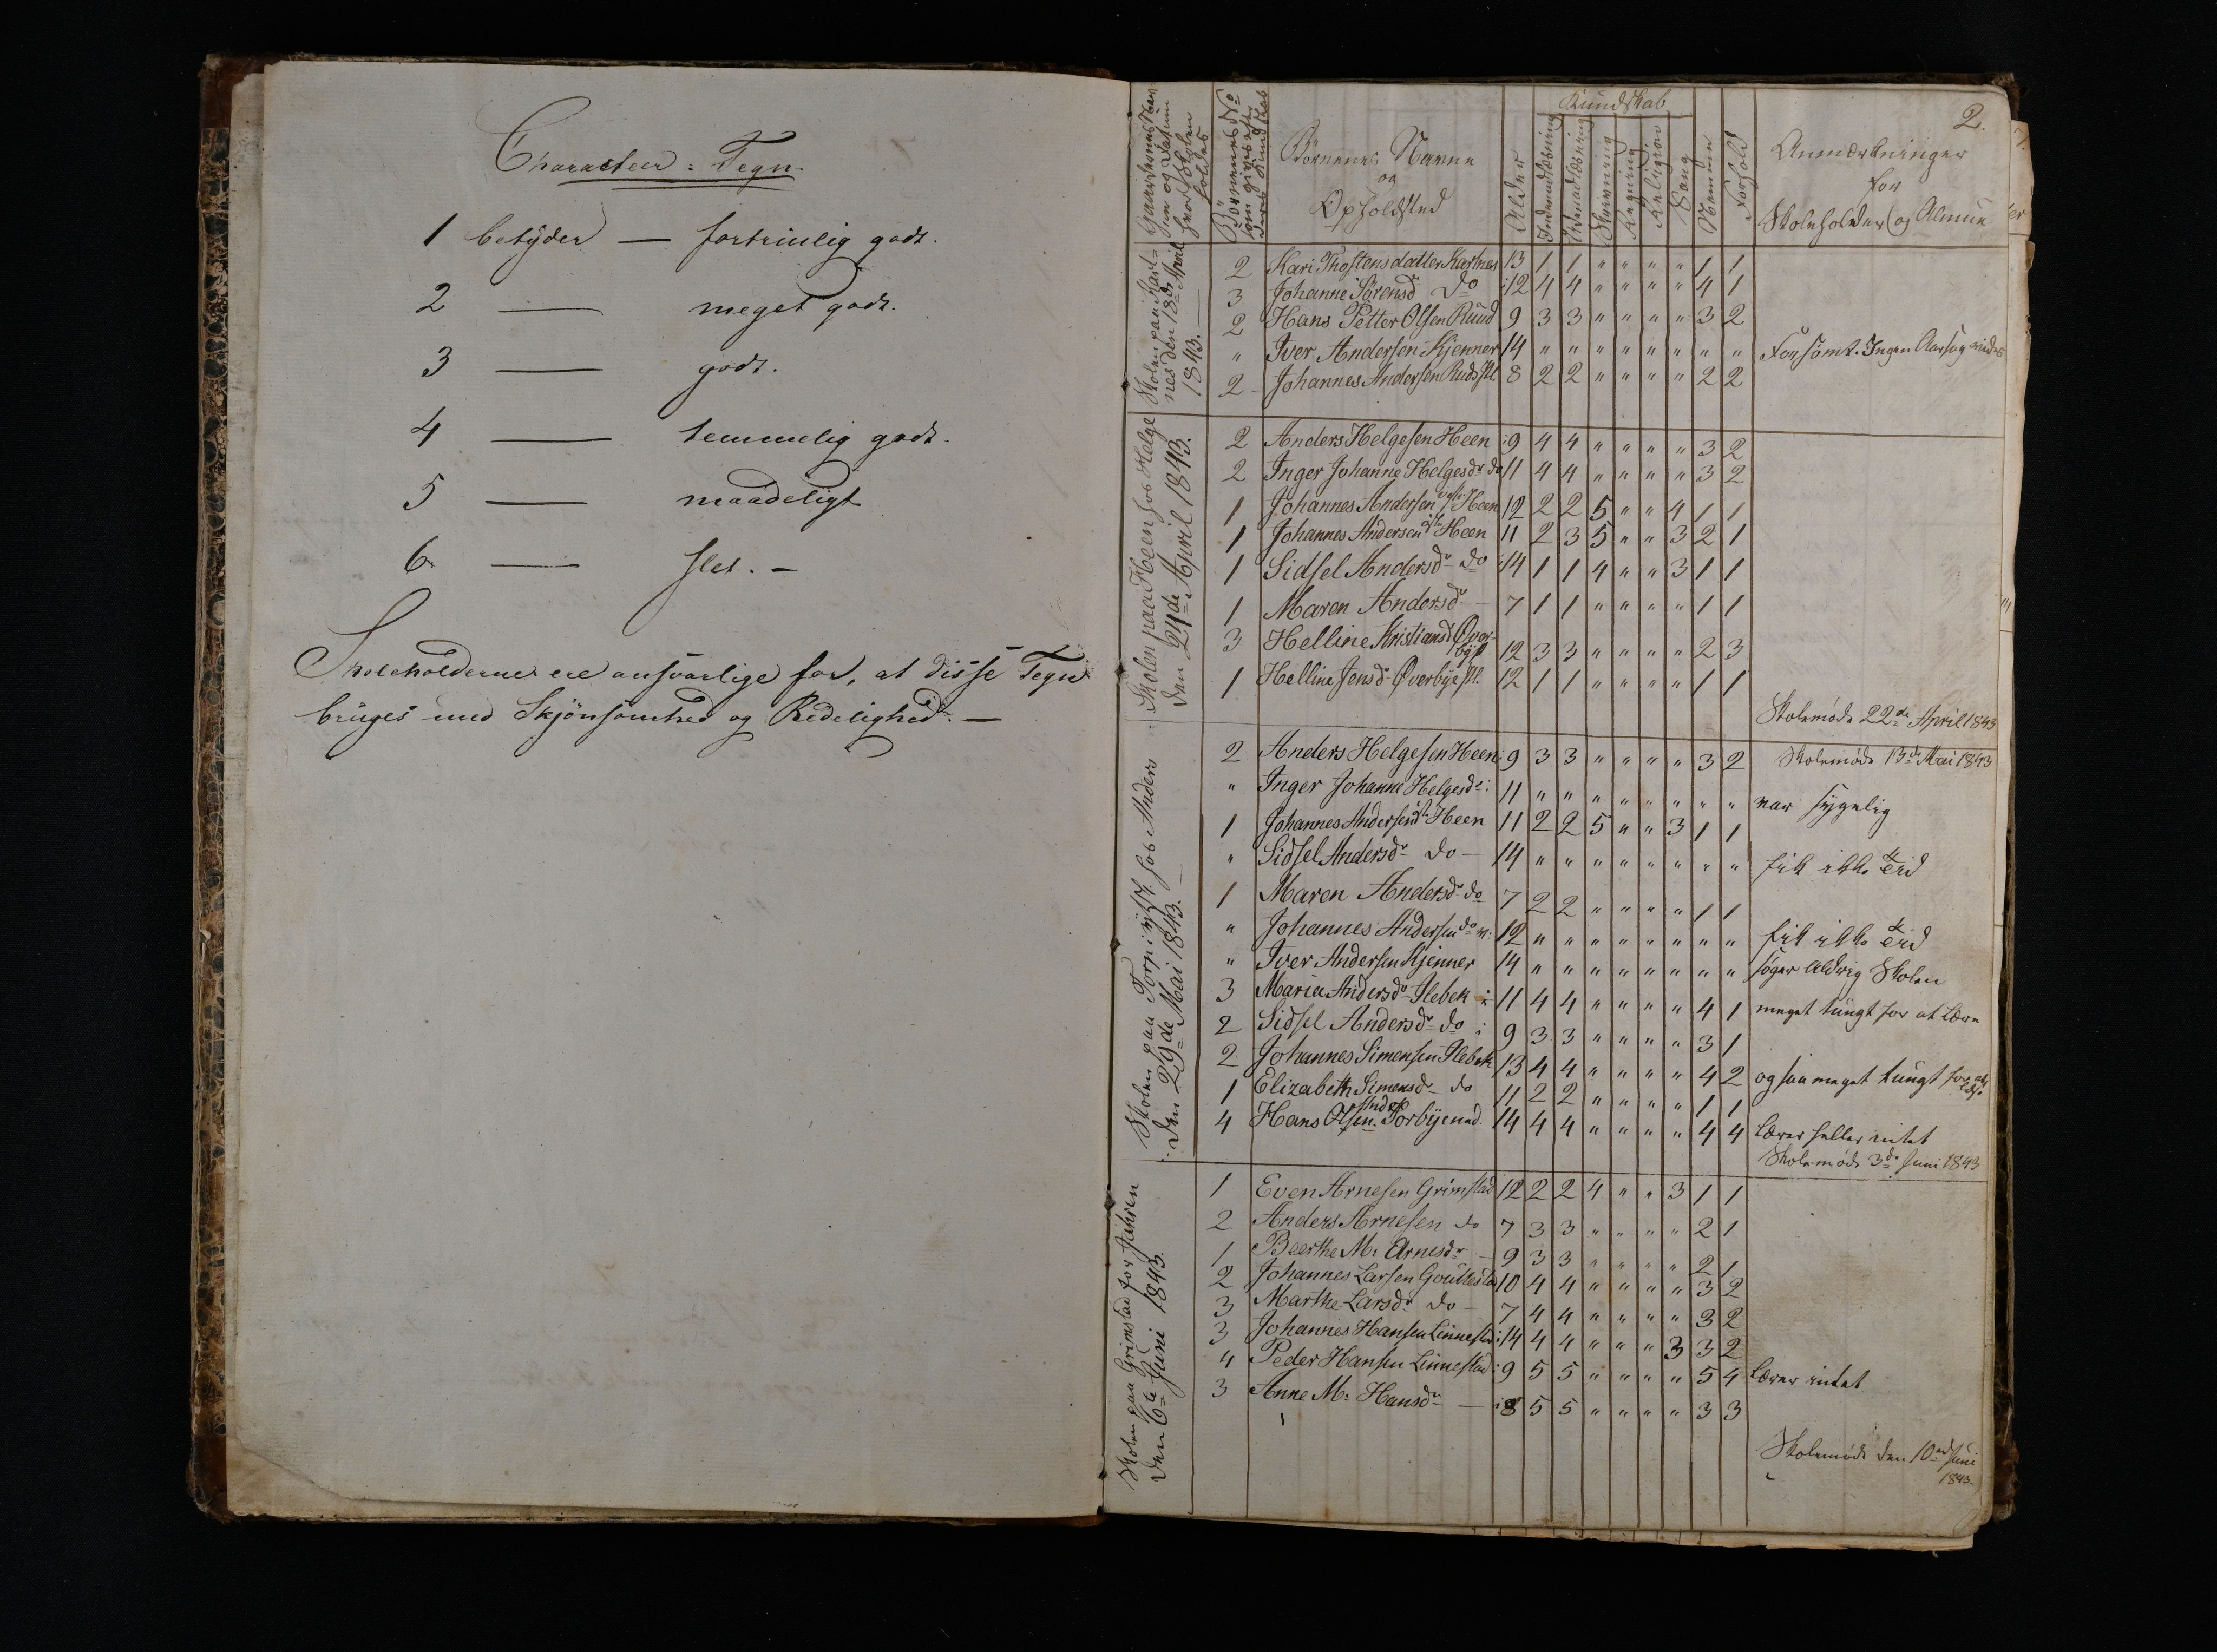 Characteer-Tegn.
1 betÿder — fortrinlig godt.
2 — meget godt.
3 — godt.
4 — temmelig godt.
5 — maadeligt
6 — slet. —
Skoleholderne ere ansvarlige for, at disse Tegn
bruges med Skjönsomhed og Redelighed. —
2.
Gaardenes Navn og Datum hvor Skolen holdes
Börnenes No som gives efter deres Kundskab
Börnenes Navne
og
Opholdsted
Alder
Kundskab
Indenadlæsning
Udenadlæsning
Skrivning
Regning
Religion
Sang
Nemme
Forhold
Anmærkninger
for
Skoleholder og Almue
Skolen paa Kart-
nes den 18de April
1843.
2 Kari Thostensdatter Kartnes 13 1 1 " " " " 1 1
3 Johanne Sörensd do 12 4 4 " " " " 4 1
2 Hans Petter Olsen Ruud 9 3 3 " " " " 3 2
" Iver Andersen Kjenner 14 " " " " " " " " Forsömt. Ingen Aarsag vides
2 Johannes Andersen Rudsstl. 8 2 2 " " " " 2 2
Skolen paa Heen hos Helge
den 21de April 1843.
2 Anders Helgesen Heen 9 4 4 " " " " 3 2
2 Inger Johanne Helgesdr do 11 4 4 " " " " 3 2
1 Johannes Andersen vestr Heen 12 2 2 5 " " 4 1 1
1 Johannes Andersen östr Heen 11 2 3 5 " " 3 2 1
1 Sidsel Andersdr do 14 1 1 4 " " 3 1 1
1 Maren Andersdr — 7 1 1 " " " " 1 1
3 Helline Kristiansd Overbÿe 12 3 3 " " " " 2 3
1 Helline Jensdr Overbÿestl. 12 1 1 " " " " 1 1
Skolemöde 22de April 1843
Skolen paa Torp hos Anders
den 29de Mai 1843.
2 Anders Helgesen Heen 9 3 3 " " " " 3 2 Skolemöde 13de Mai 1843
" Inger Johanne Helgesdr 11 " " " " " " " " var sÿgelig
1 Johannes Andersen östr Heen 11 2 2 5 " " 3 1 1
" Sidsel Andersdr do — 14 " " " " " " " " fik ikke Tid
1 Maren Andersdr do 7 2 2 " " " " 1 1
" Johannes Andersen do v. 12 " " " " " " " " fik ikke Tid
" Iver Andersen Kjenner 14 " " " " " " " " söger Aldrig Skolen
3 Maria Andersdr Ilebek 11 4 4 " " " " 4 1 meget tungt for at lære
2 Sidsel Andersdr do 9 3 3 " " " " 3 1
2 Johannes Simensen Ilebek 13 4 4 " " " " 4 2 ogsaa meget tungt for at
1 Elizabeth Simensdr do 11 2 2 " " " " 1 1
4 Hans Olsen Torbÿened. 14 4 4 " " " " 4 4 lærer heller intet
Skolemöde 3de Juni 1843
Skolen paa Grimstad for Fahren
den 6te Juni 1843.
1 Even Arnesen Grimstad 12 2 2 4 " " 3 1 1
2 Anders Arnesen do 7 3 3 " " " " 2 1
1 Beerthe M. Arnesdr — 9 3 3 " " " " 2 1
2 Johannes Larsen Goullestad 10 4 4 " " " " 3 2
3 Marthe Larsdr do — 7 4 4 " " " " 3 2
3 Johannes Hansen Linnestad 14 4 4 " " " 3 3 2
4 Peder Hansen Linnestad 9 5 5 " " " " 5 4 lærer intet
3 Anne M. Hansdr — 8 5 5 " " " " 3 3
Skolemöde den 10de Juni
1843.